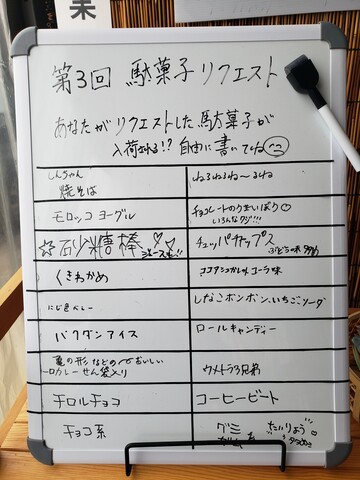 第3回 駄菓子リクエスト
あなたがリクエストした駄菓子が
入荷される!? 自由に書いてね
しんちゃん
焼そば
ねるねるね〜るね
モロッコ ヨーグル
チョコレートのくまいばり
いろんなクジ!!!
☆石少糖棒♡♡
チュッパチャップス
ぶどう味
くきわかめ
コーラ味
にじ色カレー
しなこボンボン、いちごソーダ
バクダンアイス
ロールキャンディー
亀の形などの
一口カレーせん袋入り
ウメトラ3兄弟
チロルチョコ
コーヒービート
チョコ系
グミ
たいりょう